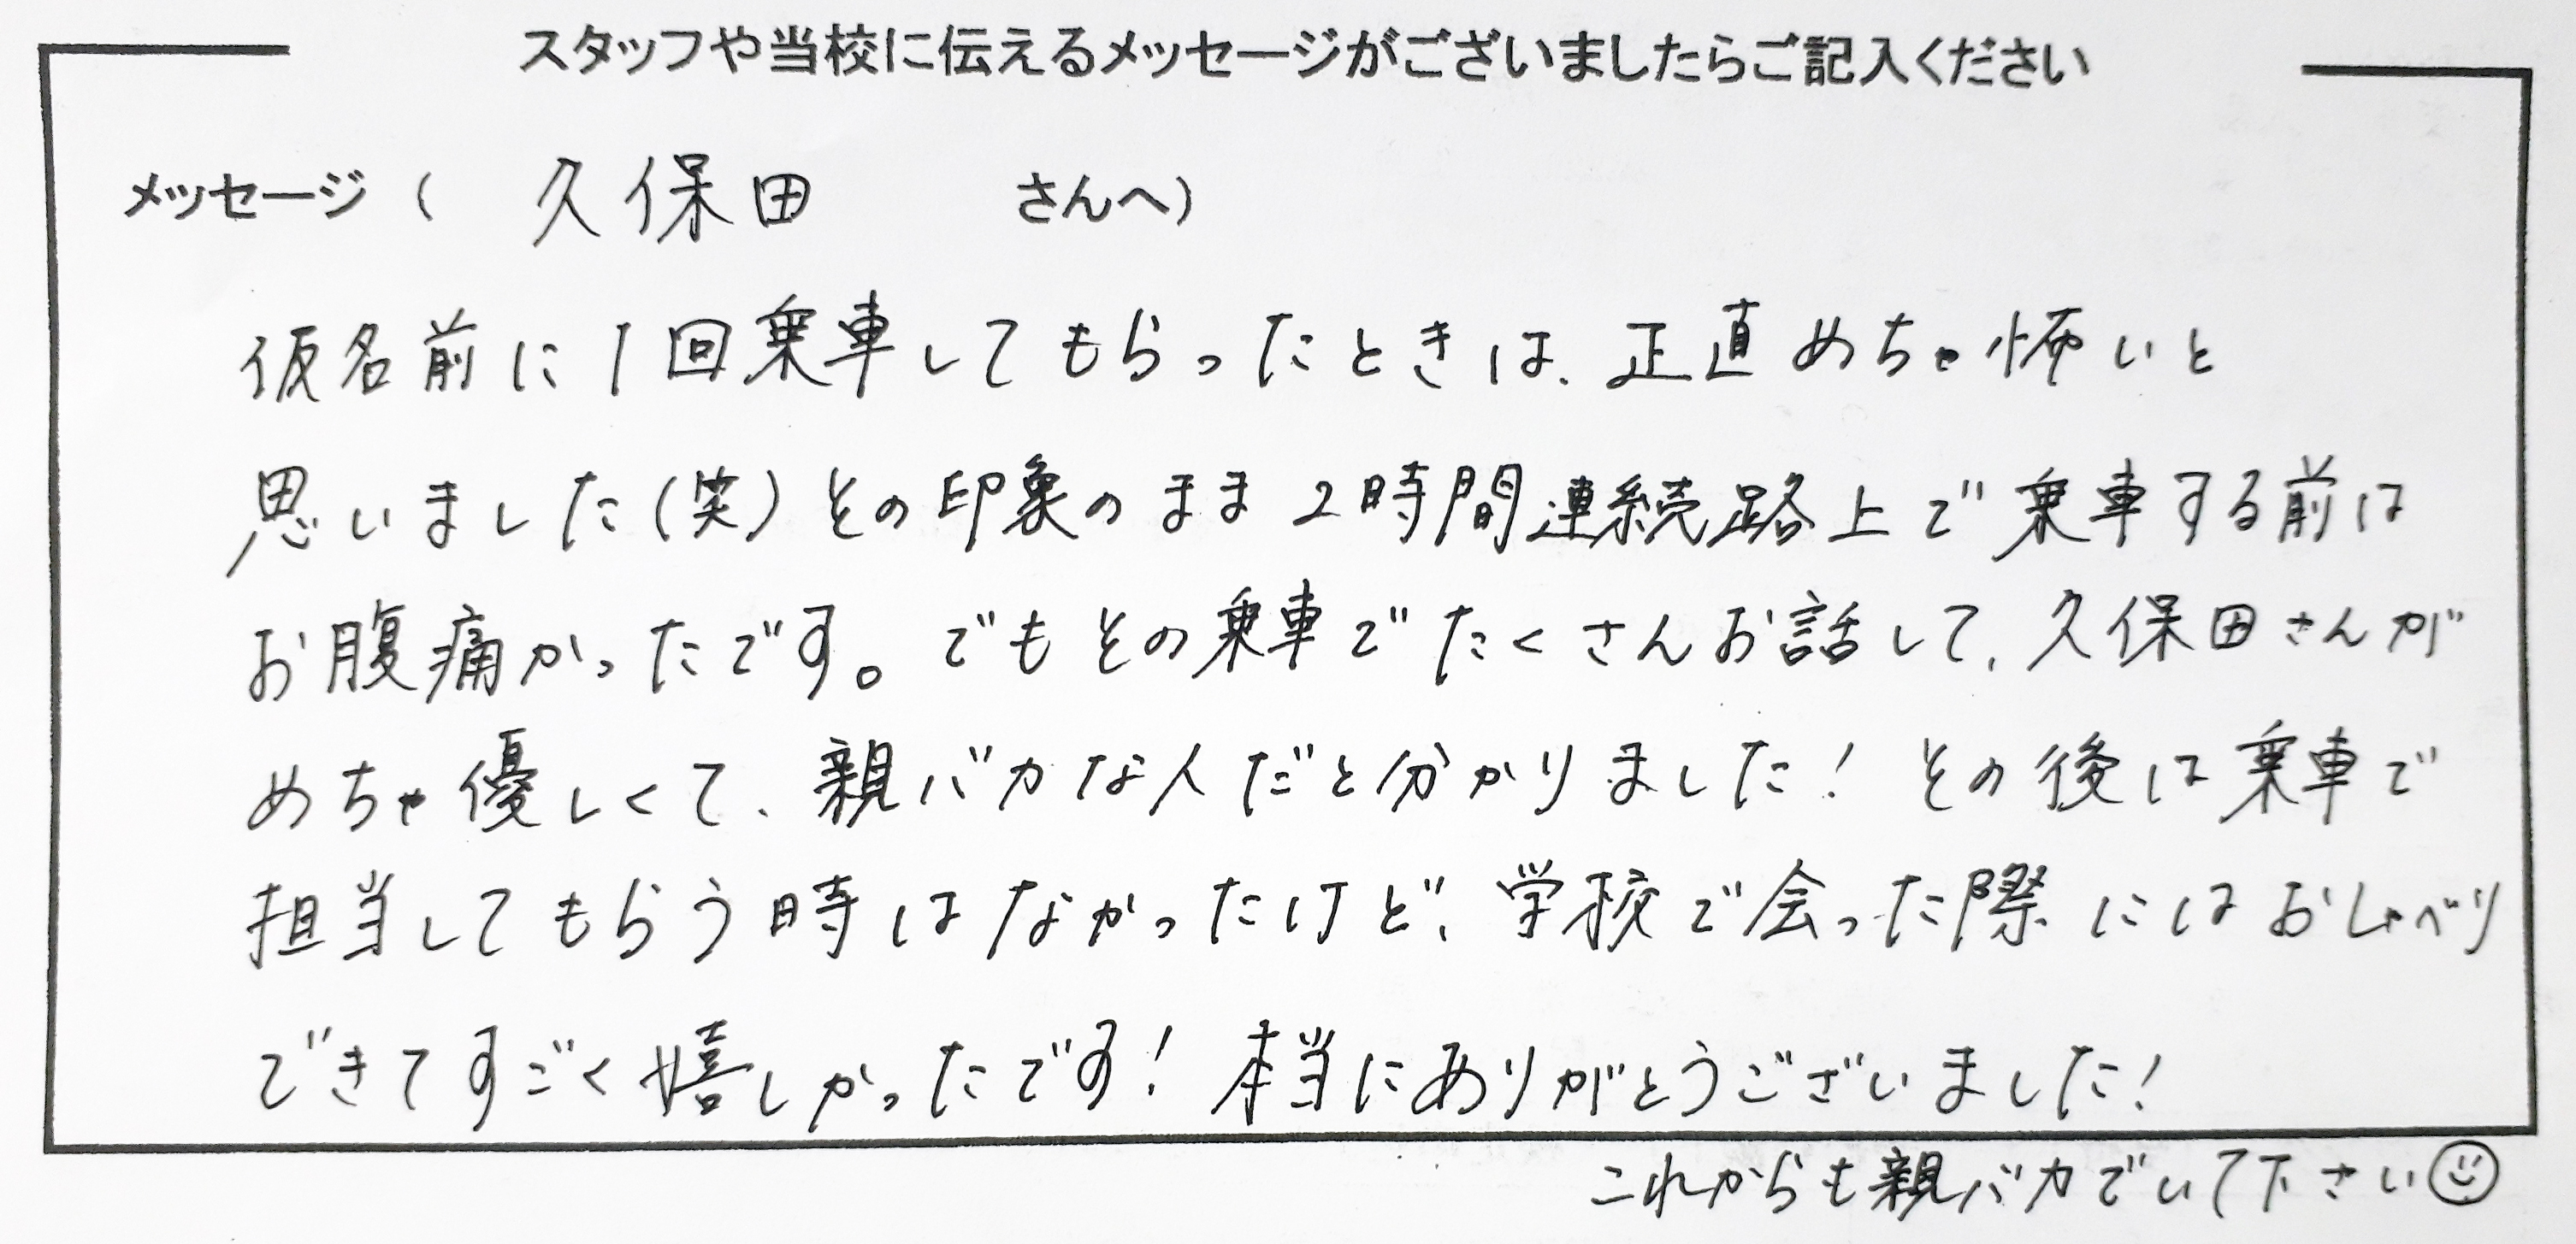 スタッフや当校に伝えるメッセージがございましたらご記入ください
メッセージ（ 久保田 さんへ）
仮名前に1回乗車してもらったときは、正直めちゃ怖いと
思いました(笑)その印象のまま2時間連続路上で乗車する前は
お腹痛かったです。でもその乗車でたくさんお話して、久保田さんが
めちゃ優しくて、親バカな人だと分かりました！その後は乗車で
担当してもらう時はなかったけど、学校で会った際にはおしゃべり
できてすごく嬉しかったです！本当にありがとうございました！
これからも親バカでいて下さい☺